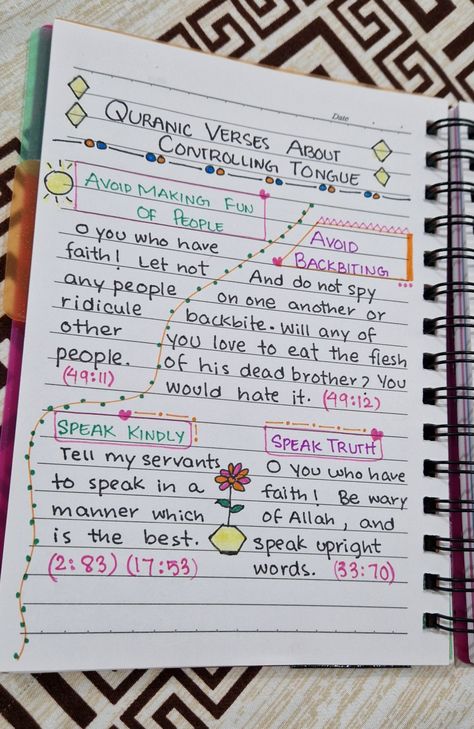 Date
QURANIC VERSES ABOUT
CONTROLLING TONGUE
AVOID MAKING FUN
OF PEOPLE
O you who have
faith! Let not
any people
ridicule
other
people.
(49:11)
AVOID
BACKBITING
And do not spy
on one another or
backbite. Will any of
you love to eat the flesh
of his dead brother? You
would hate it. (49:12)
SPEAK KINDLY
Tell my servants
to speak in a
manner which
is the best.
(2:83) (17:53)
SPEAK TRUTH
O you who have
faith! Be wary
of Allah, and
speak upright
words. (33:70)